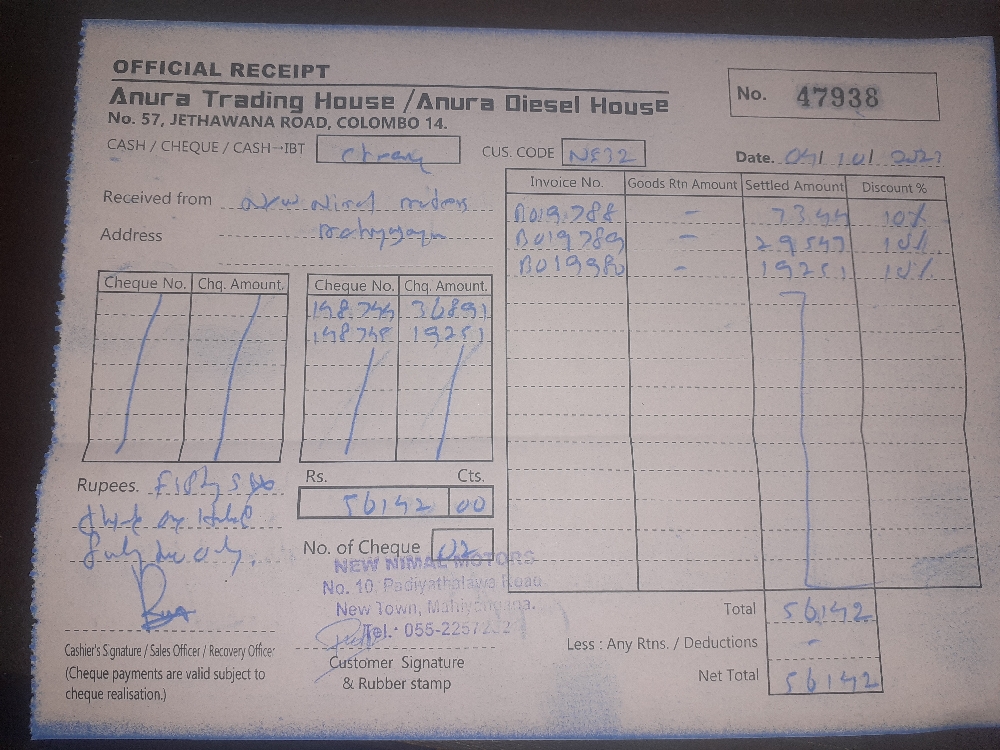 OFFICIAL RECEIPT
Anura Trading House / Anura Diesel House
No. 57, JETHAWANA ROAD, COLOMBO 14.
No. 47938
CASH / CHEQUE / CASH→IBT
CUS. CODE NE32
Date.
Received from New Nimal
Address
Invoice No. Goods Rtn Amount Settled Amount Discount %
B019788 - 7344 10%
B019789 - 29547 10%
- 19251 10%
Cheque No. Chq. Amount. Cheque No. Chq. Amount.
36891
19251
Rupees. Fifty six
Rs. Cts.
56142 00
No. of Cheque 02
NEW NIMAL MOTORS
No. 10, Padiyathalawa Road
New Town, Mahiyangana.
Tel.: 055-2257232
Total 56142
Less : Any Rtns. / Deductions -
Net Total 56142
Cashier's Signature / Sales Officer / Recovery Officer
(Cheque payments are valid subject to
cheque realisation.)
Customer Signature
& Rubber stamp